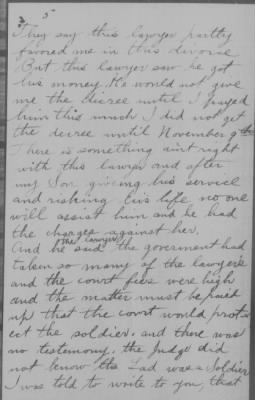 5
They say this lawyer partly
favored me in this divorce
But this lawyer saw he got
his money. He would not give
me the decree until I payed
him this much I did not get
the decree until November 9th
There is something ain't right
with this lawyer and after
my Son giveing his service
and risking his life no one
will assist him and he had
the charges against her.
And he the lawyer said the goverment had
taken so many of the lawyers
and the court fees were high
and the matter must be paid
up that the court would prot
ect the soldier. and there was
no testemony. the Judge did
not know the Lad was a Soldier
I was told to write to you, that